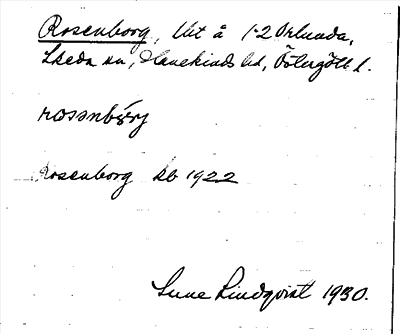 Rosenborg, Utt å 1:2 Orlunda,
Skeda sn, Hanekinds hd, Östergötl. l.
rosənbörj
Rosenborg kb 1922
Sune Lindqvist 1930.